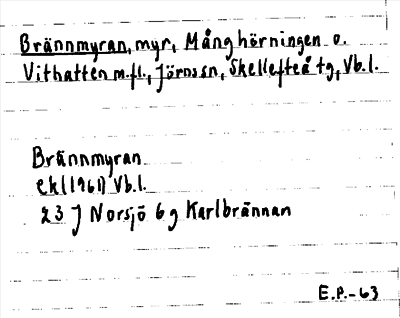 Brännmyran, myr, Månghörningen o.
Vithatten m.fl., Jörns sn, Skellefteå tg, Vb.l.
Brännmyran
ek (1961) Vb.l.
23 J Norsjö 6 g Karlbrännan
E.P.-63